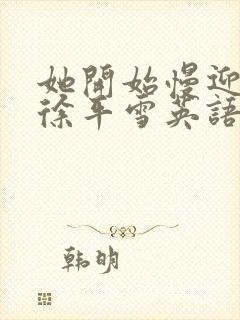 她開始慢迎
徐平雪英語
韩明